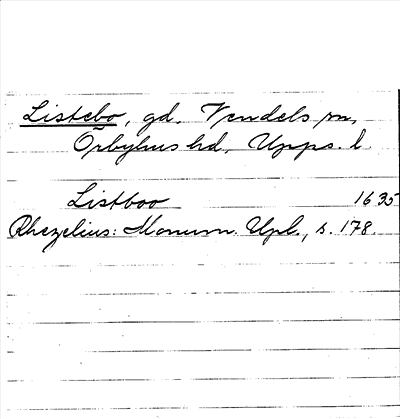 Listebo, gd, Vendels sn,
Örbyhus hd, Upps. l
Listboo 1635
Rhezelius: Monum. Upl., s. 178.